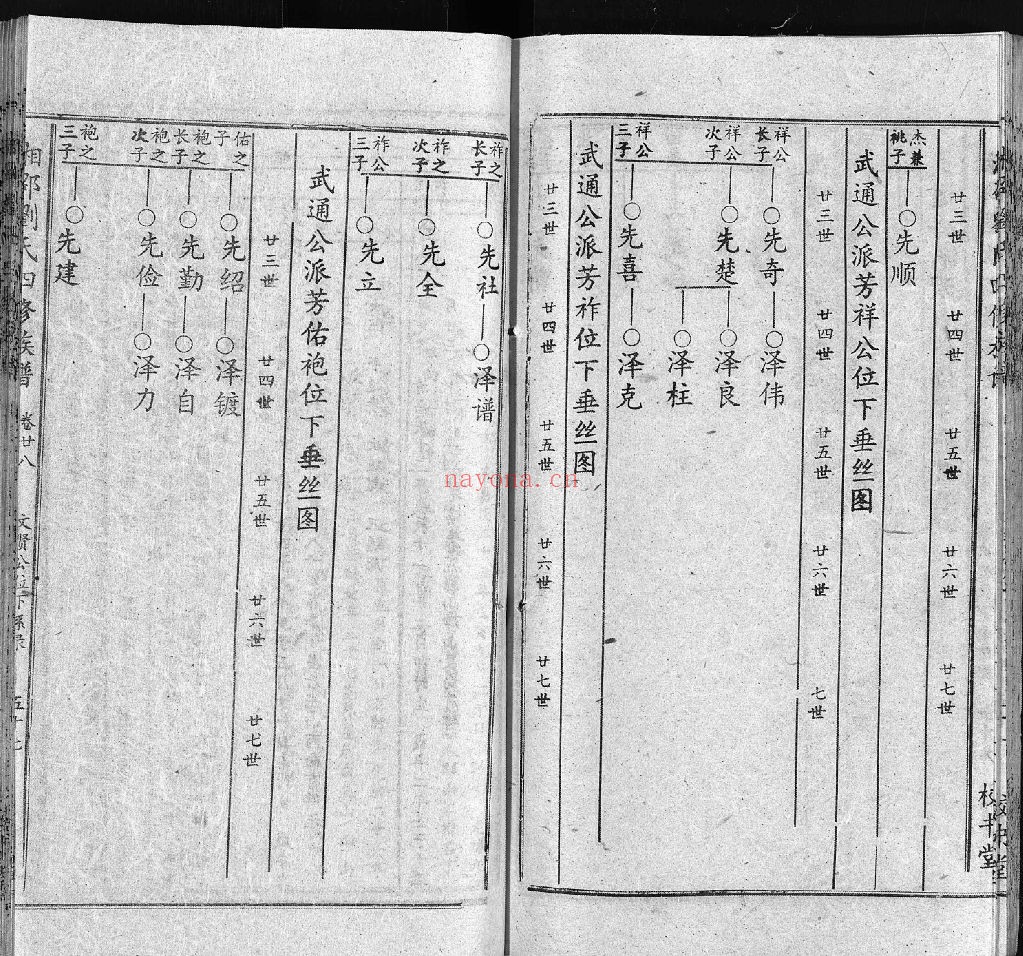 廿三世 廿四世 廿五世 廿六世 廿七世
杰兼祧子 ○先顺
武通公派芳祥公位下垂丝图
廿三世 廿四世 廿五世 廿六世 七世
祥公长子 ○先奇 ○泽伟
祥公次子 ○先楚 ○泽良
○泽柱
祥公三子 ○先喜 ○泽克
武通公派芳祚位下垂丝图
廿三世 廿四世 廿五世 廿六世 廿七世
校书堂
祚之长子 ○先社 ○泽谱
祚之次子 ○先全
祚公三子 ○先立
武通公派芳佑袍位下垂丝图
廿三世 廿四世 廿五世 廿六世 廿七世
佑之子 ○先绍 ○泽镀
袍之长子 ○先勤 ○泽自
袍之次子 ○先俭 ○泽力
袍之三子 ○先建
湘邵刘氏四修族谱 卷廿八 文贤公位下系录
nayona.cn